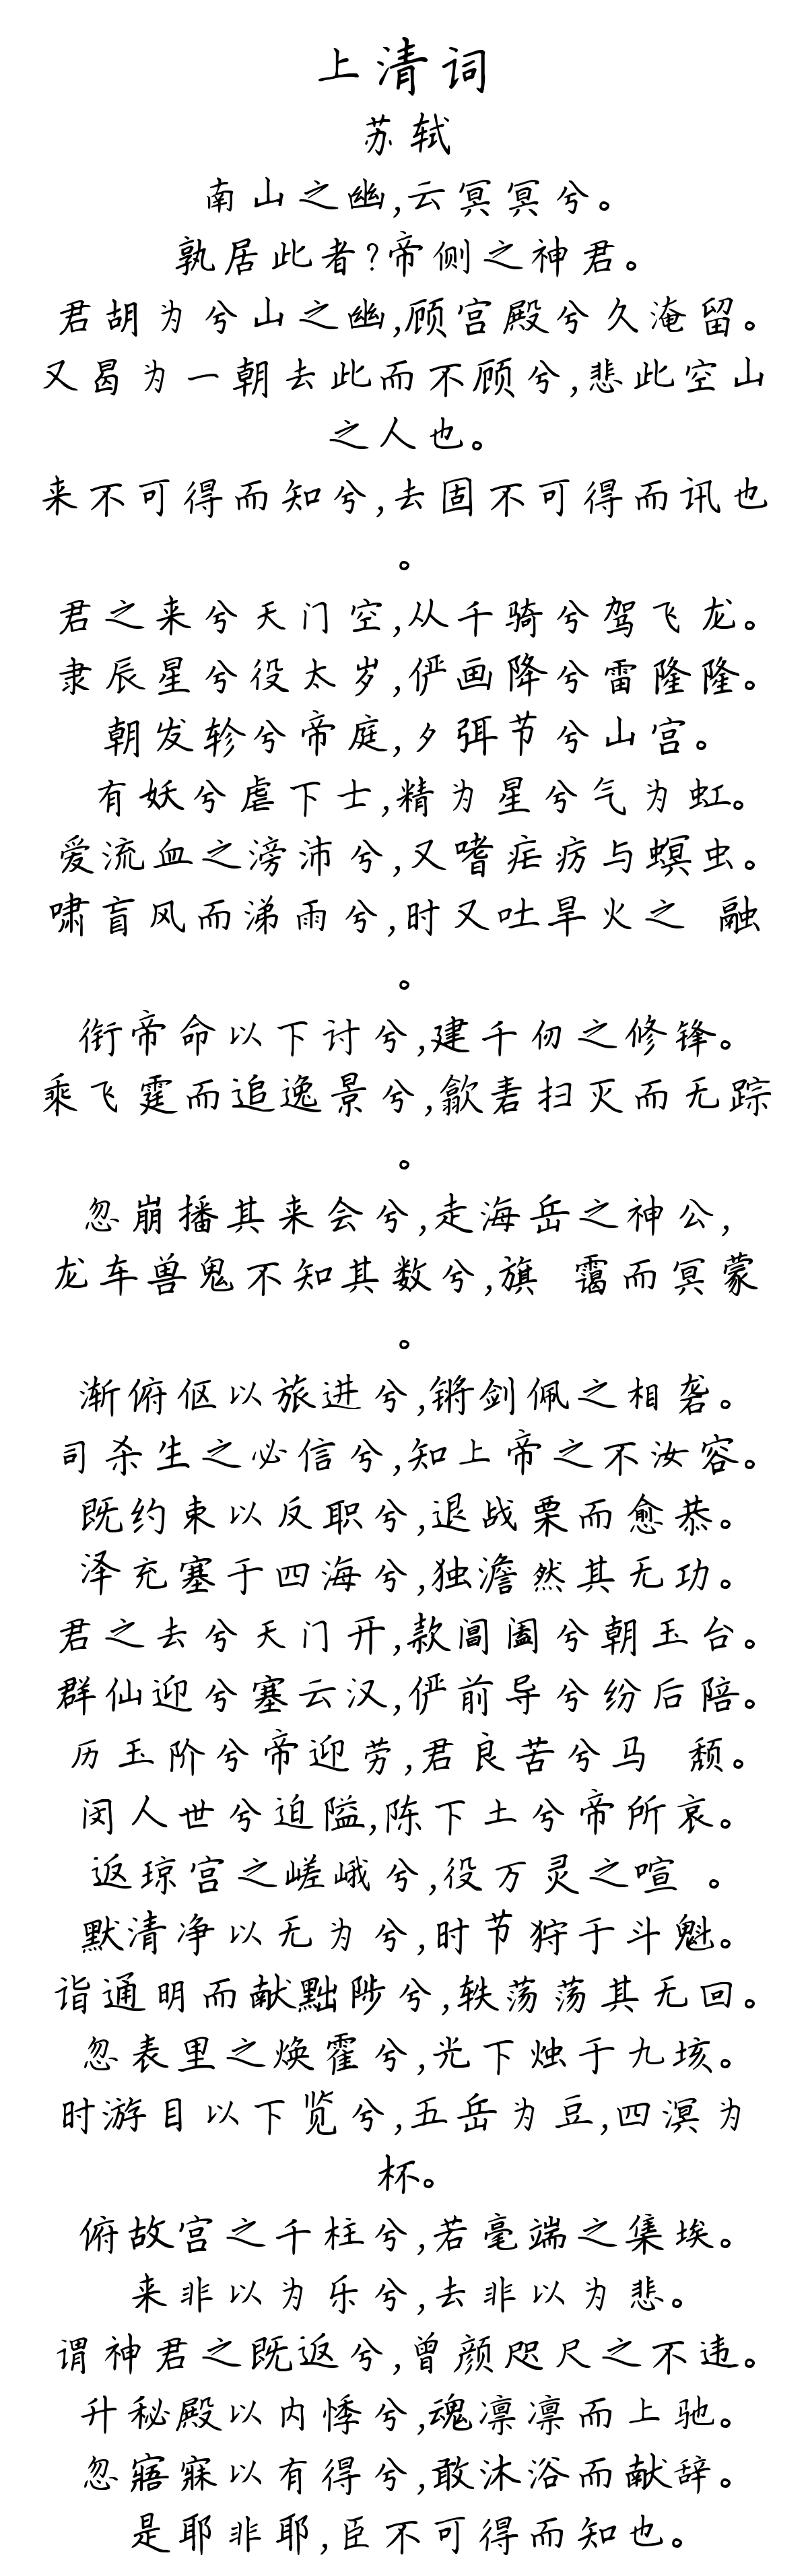 上清词
苏轼
南山之幽,云冥冥兮。
孰居此者?帝侧之神君。
君胡为兮山之幽,顾宫殿兮久淹留。
又曷为一朝去此而不顾兮,悲此空山
之人也。
来不可得而知兮,去固不可得而讯也
。
君之来兮天门空,从千骑兮驾飞龙。
隶辰星兮役太岁,俨画降兮雷隆隆。
朝发轸兮帝庭,夕弭节兮山宫。
有妖兮虐下士,精为星兮气为虹。
爱流血之滂沛兮,又嗜疟疠与螟虫。
啸盲风而涕雨兮,时又吐旱火之 融
。
衔帝命以下讨兮,建千仞之修锋。
乘飞霆而追逸景兮,歙砉扫灭而无踪
。
忽崩播其来会兮,走海岳之神公,
龙车兽鬼不知其数兮,旗 霭而冥蒙
。
渐俯伛以旅进兮,锵剑佩之相砻。
司杀生之必信兮,知上帝之不汝容。
既约束以反职兮,退战栗而愈恭。
泽充塞于四海兮,独澹然其无功。
君之去兮天门开,款阊阖兮朝玉台。
群仙迎兮塞云汉,俨前导兮纷后陪。
历玉阶兮帝迎劳,君良苦兮马 颓。
闵人世兮迫隘,陈下土兮帝所哀。
返琼宫之嵯峨兮,役万灵之喧 。
默清净以无为兮,时节狩于斗魁。
诣通明而献黜陟兮,轶荡荡其无回。
忽表里之焕霍兮,光下烛于九垓。
时游目以下览兮,五岳为豆,四溟为
杯。
俯故宫之千柱兮,若毫端之集埃。
来非以为乐兮,去非以为悲。
谓神君之既返兮,曾颜咫尺之不违。
升秘殿以内悸兮,魂凛凛而上驰。
忽寤寐以有得兮,敢沐浴而献辞。
是耶非耶,臣不可得而知也。